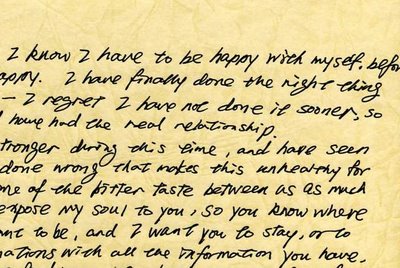 I know I have to be happy with myself, before
appy. I have finally done the right thing
— I regret I have not done it sooner, so
have had the real relationship.
tronger during this time, and have seen
done wrong that makes this unhealthy for
me of the bitter taste between us as much
expose my soul to you, so you know where
nt to be, and I want you to stay, or to
nations with all the information you have.